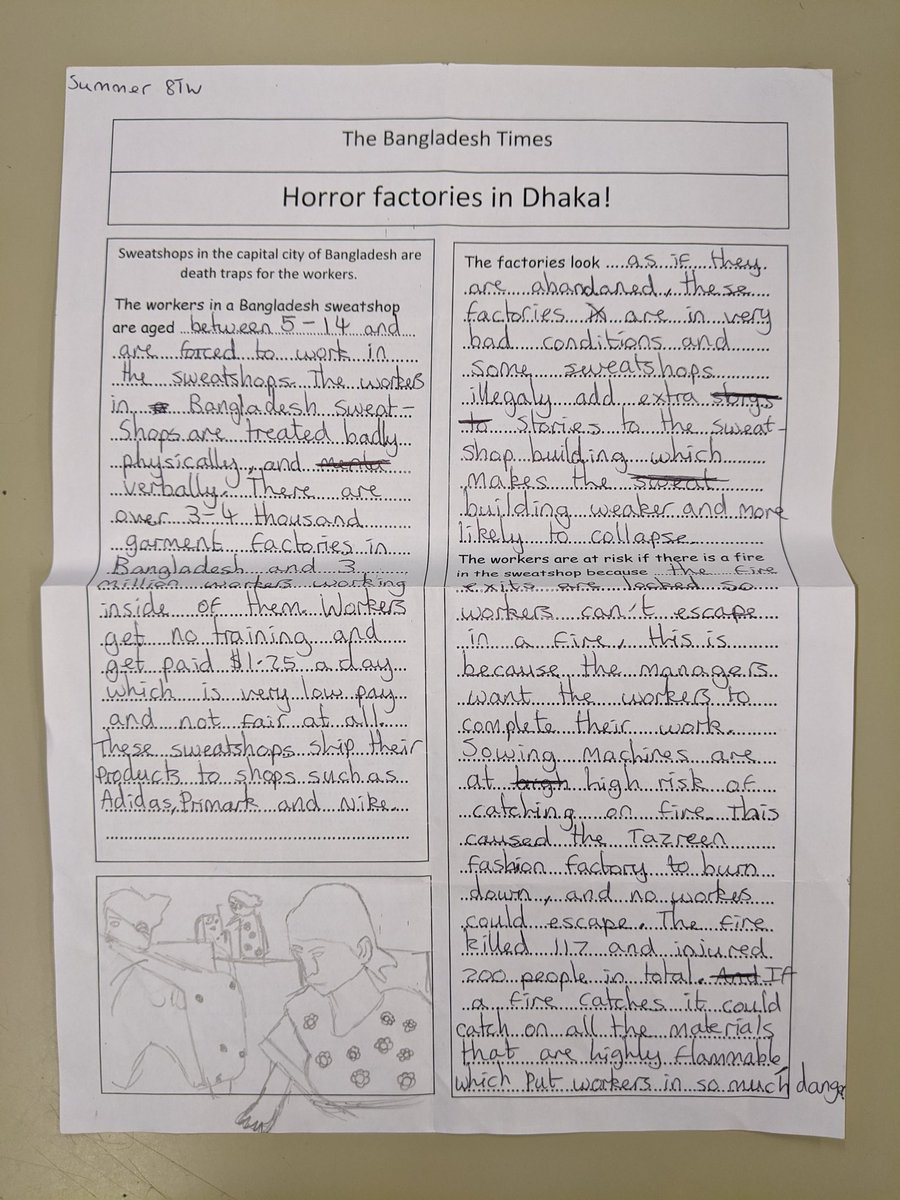 Summer 8TW
The Bangladesh Times
Horror factories in Dhaka!
Sweatshops in the capital city of Bangladesh are
death traps for the workers.
The workers in a Bangladesh sweatshop
are aged between 5-14 and
are forced to work in
the sweatshops. The workers
in Bangladesh sweat-
shops are treated badly
physically, and mental
verbally. There are
over 3-4 thousand
garment factories in
Bangladesh and 3
million workers working
inside of them. Workers
get no training and
get paid $1.25 a day
which is very low pay
and not fair at all.
These sweatshops ship their
products to shops such as
Adidas, Primark and Nike.
The factories look as if they
are abandaned, these
factories are in very
bad conditions and
some sweatshops
illegaly add extra storys
to stories to the sweat-
shop building which
makes the sweat
building weaker and more
likely to collapse.
The workers are at risk if there is a fire
in the sweatshop because the fire
exits are locked so
workers can't escape
in a fire, this is
because the managers
want the workers to
complete their work.
Sowing machines are
at high risk of
catching on fire. This
caused the Tazreen
fashion factory to burn
down, and no workes
could escape. The fire
killed 117 and injured
200 people in total. And If
a fire catches it could
catch on all the materials
that are highly flammable
which put workers in so much danger